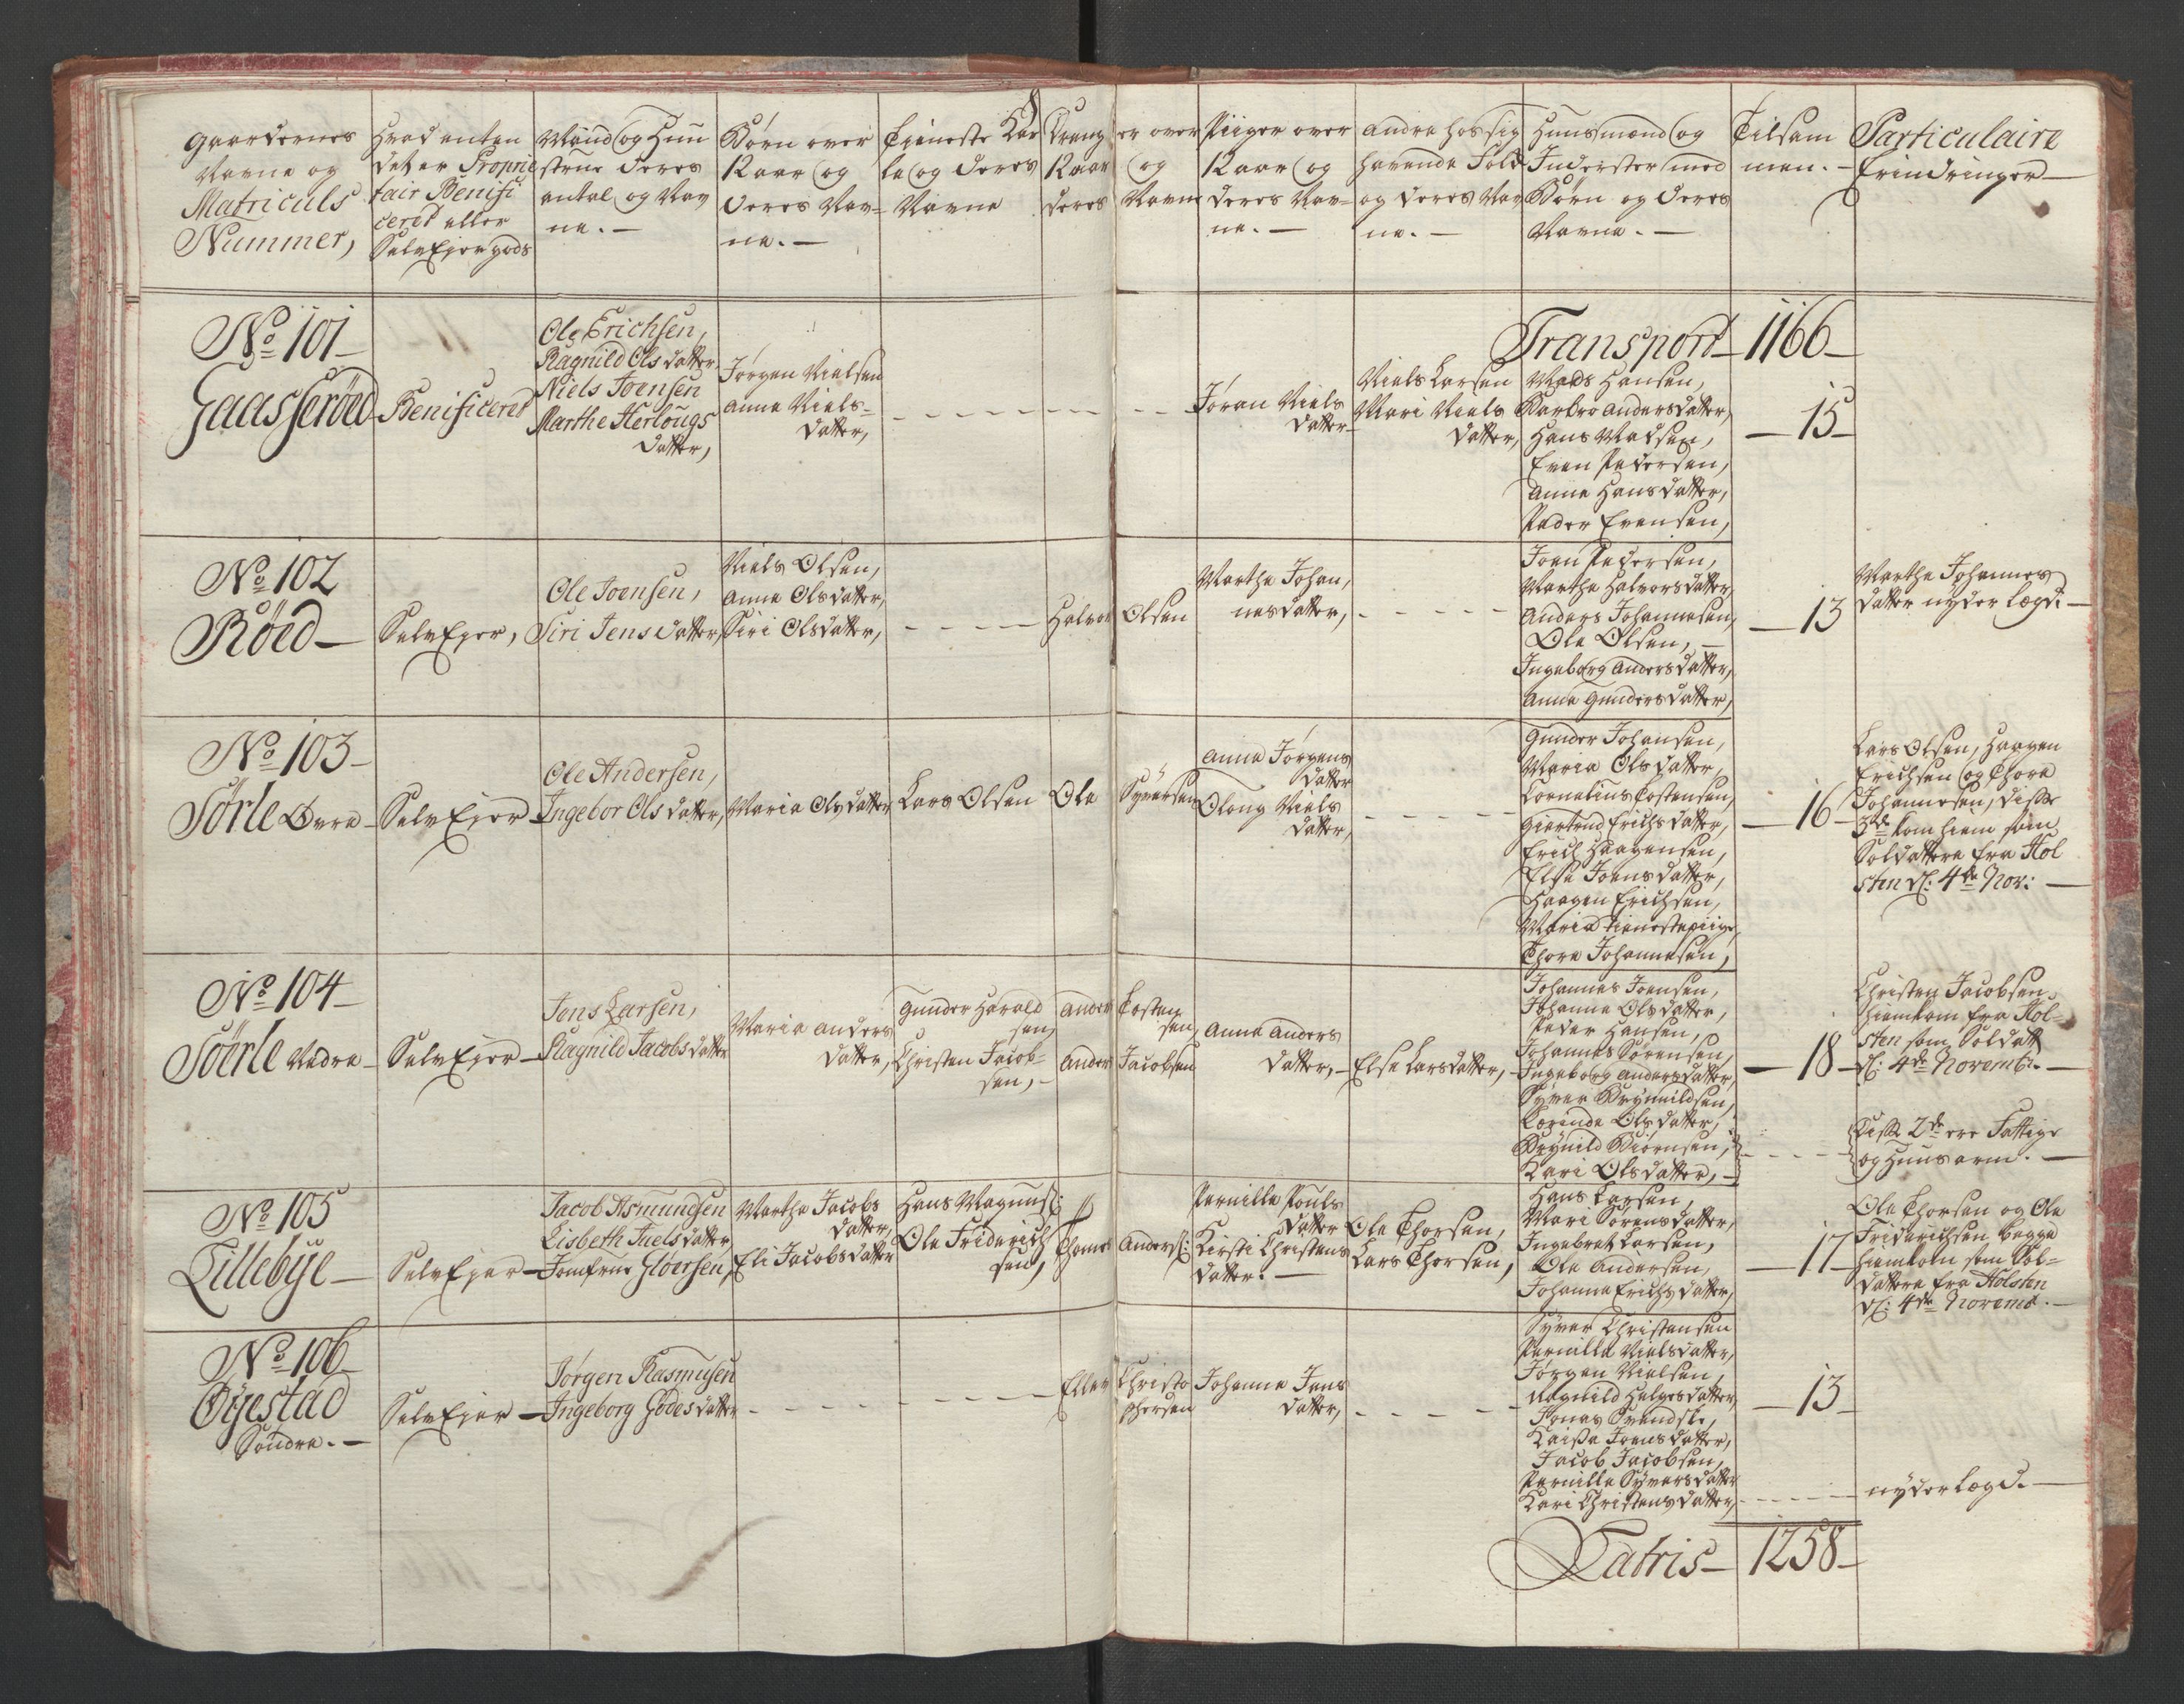 Gaardernes
Navne og
Matriculs
Nummer,
Hvad enten
det er Proprie
tair Benifi
ceret eller
SelvEjer gods
Mand og Huu
strue deres
antal og Nav
ne. —
Børn over
12 aar og
deres Nav=
ne. —
Tieneste Kar
le og deres
Navne
Dreng
12 aar
deres
er over
og
Navne
Piiger over
12 aar og
deres Nav=
ne. —
Andre hos sig
havende Folk
og deres Nav
ne. —
Huusmænd og
Inderster med
Børn og deres
Navne. —
Tilsam
men. —
Particulaire
Erindringer —
Transport — 1166 —
No 101 —
Gaasseröed
Benificeret
Ole Erichsen,
Ragnild Ols datter
Niels Joensen
Marthe Herlougs
datter,
Jørgen Nielsen
Anne Niels=
datter,
Jøran Niels
datter
Niels Larsen
Mari Niels
datter,
Mads Hansen,
Barbro Andersdatter,
Hans Madsen,
Even Pedersen,
Anne Hansdatter,
Peder Evensen,
— 15 —
No 102
Röed —
SelvEjer,
Ole Joensen,
Siri Jens datter,
Niels Olsen,
Anne Olsdatter,
Siri Olsdatter,
Halvor
Olsen
Marthe Johan,
nesdatter,
Joen Pedersen,
Marthe Halvorsdatter,
Anders Johannesen,
Ole Olsen, —
Ingeborg Andersdatter,
Anne Gundersdatter,
— 13
Marthe Johannes
datter nyder Lægd. —
No 103 —
Sörle Øvre —
SelvEjer —
Ole Andersen,
Ingebor Ols datter,
Maria Olsdatter
Lars Olsen
Ole
Syversen
Anne Jørgens
datter
Oloug Niels
datter,
Gunder Johansen,
Maria Olsdatter,
Cornelius Tostensen,
Giertrud Erichsdatter,
Erich Haagensen,
Else Joensdatter,
Haagen Erichsen,
Maria tienestepiige,
Thore Johannesen,
— 16 —
Lars Olsen, Haagen
Erichsen og Thore
Johannesen, disse
3de kom hiem som
Soldattere fra Hol
sten d: 4de Nov: —
No 104 —
Söerle Nedre —
SelvEjer —
Jens Larsen,
Ragnild Jacobs datter
Maria Anders
datter,
Gunder Harald
sen,
Christen Jacob=
sen, —
Anders
Anders
Tosten
sen,
Jacobsen
Anne Anders
datter, —
Else Larsdatter, —
Johannes Joensen,
Johanne Olsdatter,
Peder Hansen,
Johannes Sørensen,
Ingeborg Andersdatter,
Syver Brynnildsen,
Lorinde Olsdatter,
Brynild Biørnsen,
Kari Olsdatter, —
— 18 —
Christen Jacobsen,
hiemkom fra Hol=
sten som Soldatt
d: 4de Novemb: —
Disse 2de ere Fattige
og Huusarm. —
No 105
Lillebye —
SelvEjer —
Jacob Asmundsen
Lisbeth Juelsdatter,
Jomfrue Gloersen,
Marthe Jacobs
datter,
Eli Jacobsdatter
Hans Magnus:
Ole Friderich
sen,
Thomes
Anders:
Pernille Pouls
datter
Kirsti Christens
datter. —
Ole Thorsen,
Lars Thorsen,
Hans Larsen,
Mari Sørensdatter,
Ingebret Larsen,
Ole Andersen,
Johanne Erichsdatter,
— 17 —
Ole Thorsen og Ole
Friderichsen begge
hiemkom som Sol=
dattere fra Holsten
d: 4de Novemb. —
No 106 —
Øyestad
Søndre. —
SelvEjer —
Jørgen Rasmusen
Ingeborg Godes datter
Ellev
Christo
phersen
Johanne Jens
datter,
Syver Christensen
Pernille Nielsdatter,
Jørgen Nielsen,
Ragnild Helgesdatter,
Jonas Svendske,
Kaisa Joensdatter,
Jacob Jacobsen,
Pernille Syversdatter
Kari Christensdatter,
— 13 —
nyder Lægd. —
Latris — 1258 —